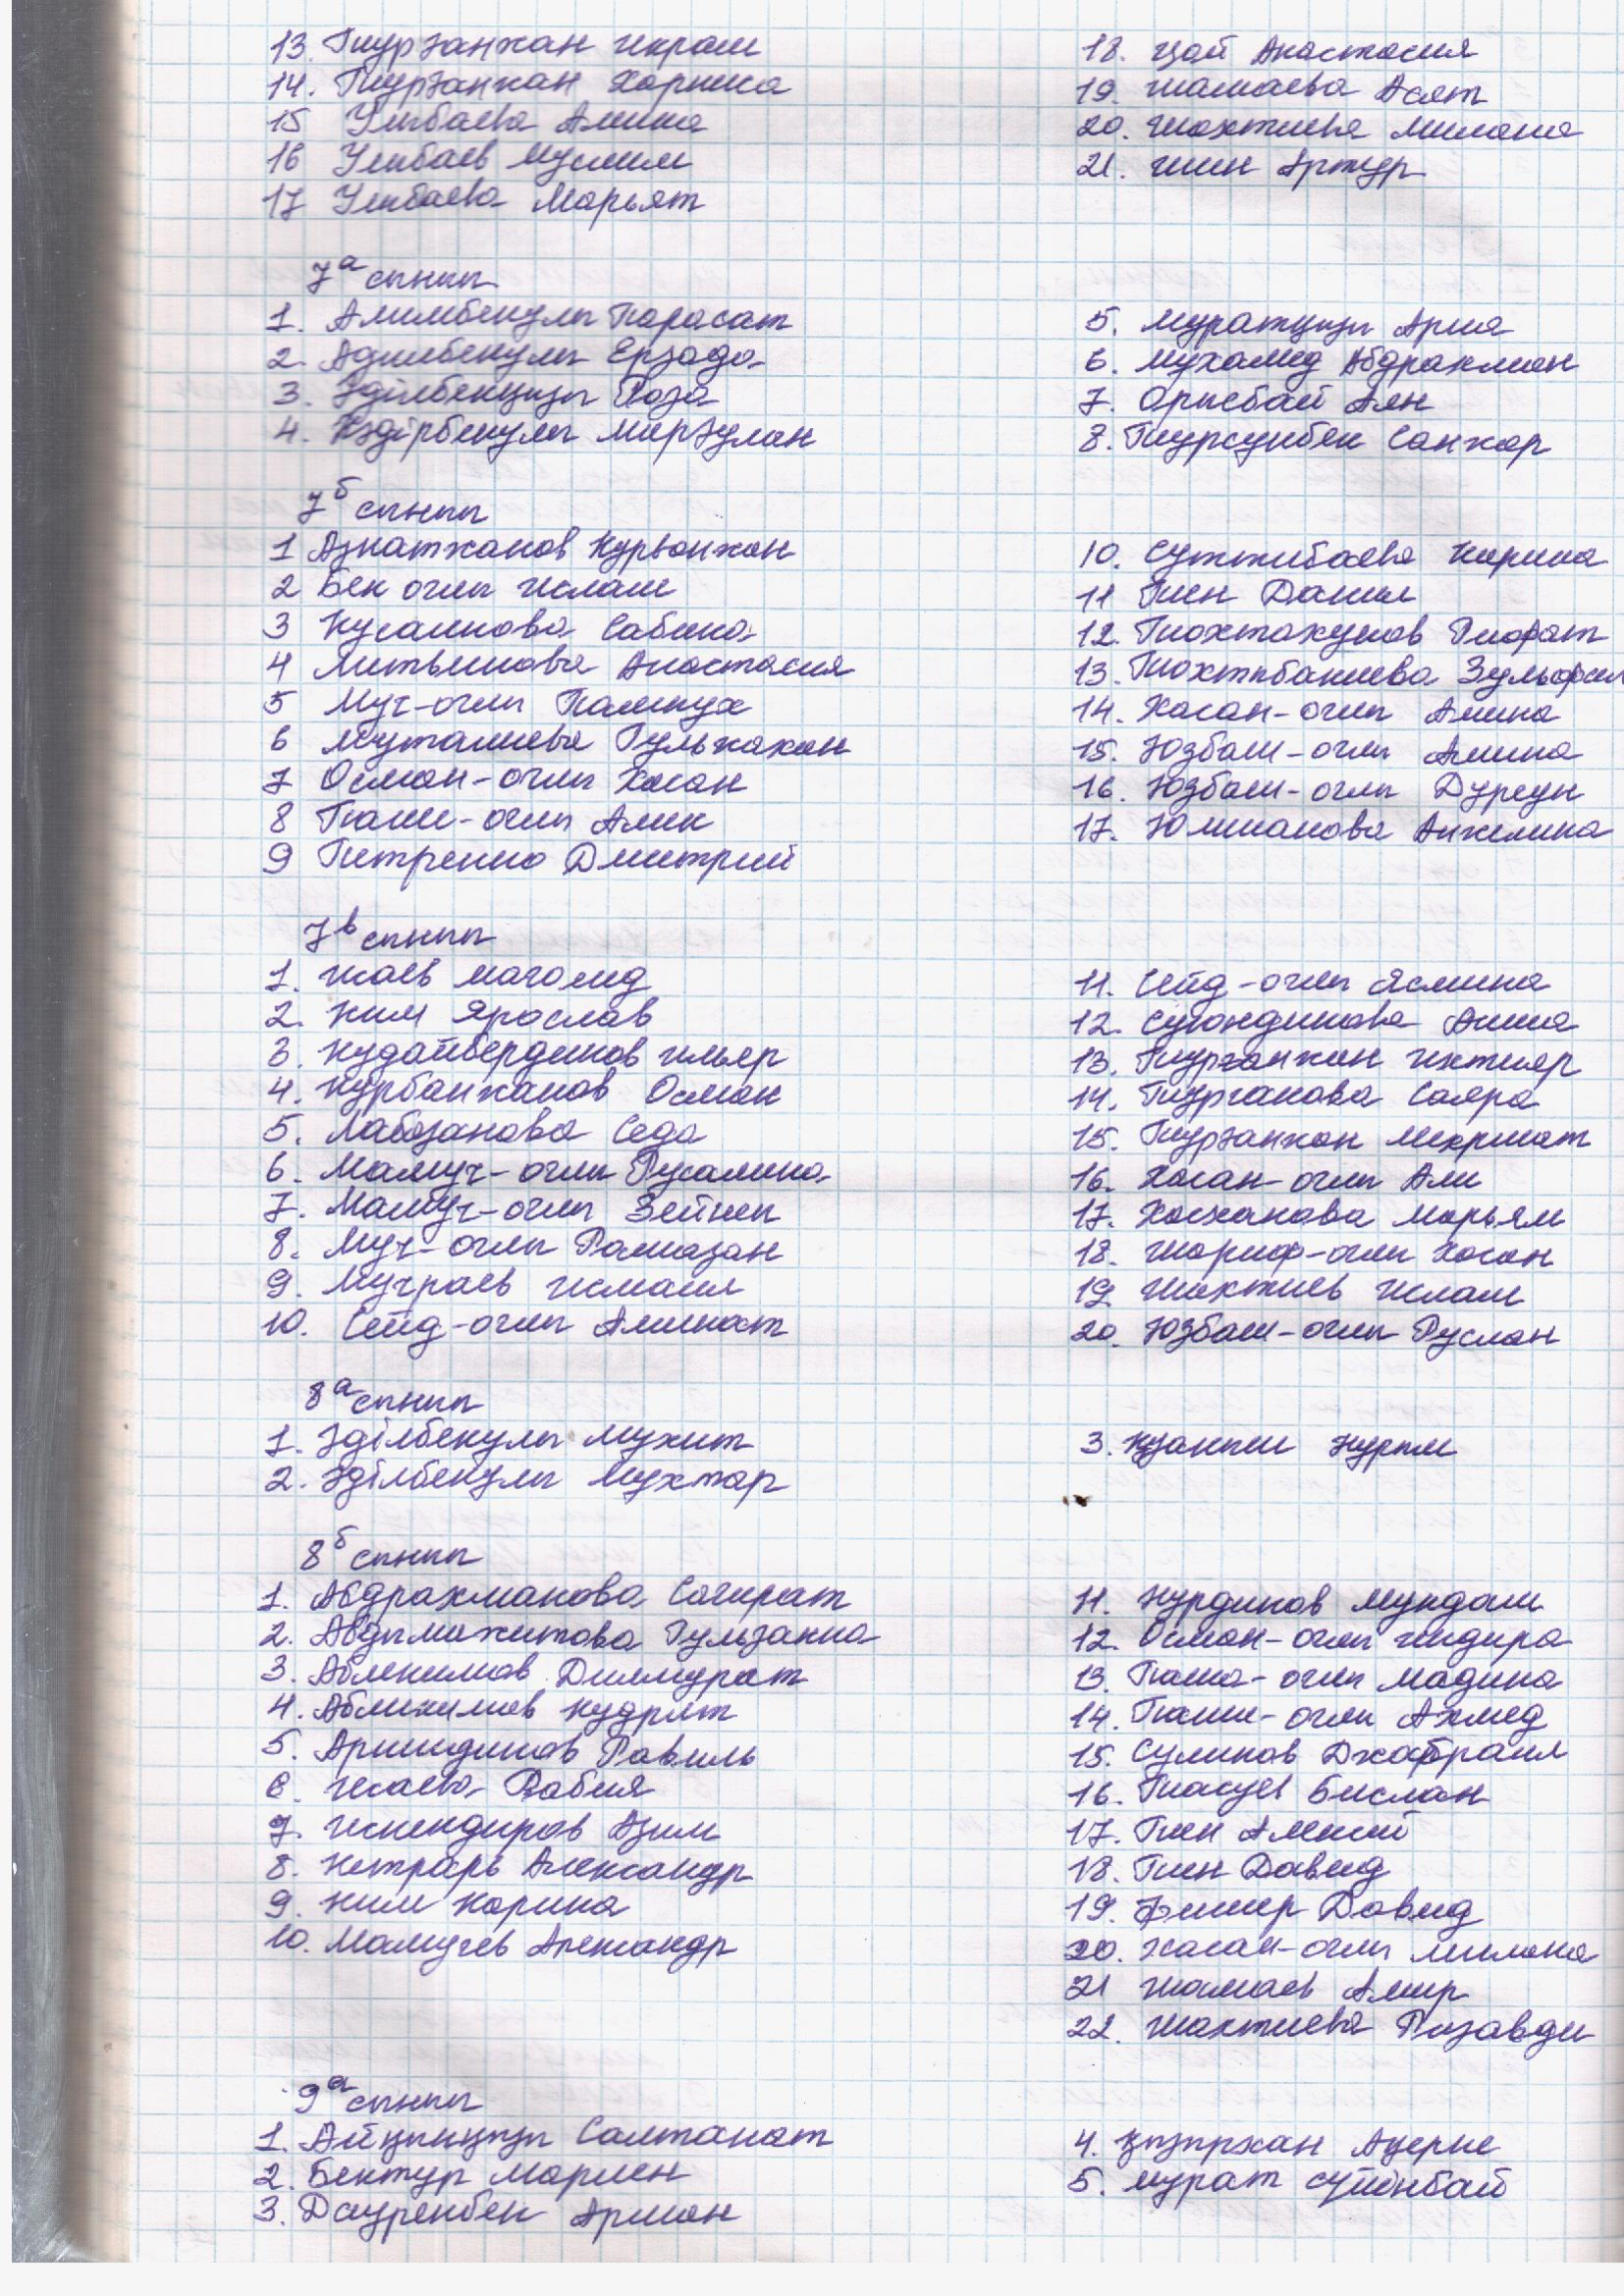 13. Турғанжан Икрам
14. Турғанжан Хариса
15 Умбаева Амина
16 Умбаев Муслим
17 Умбаева Марьят
18. Цой Анастасия
19. Шамаева Асят
20. Шахтиева Милана
21. Шин Артур
7а сынып
1. Алимбекулы Парасат
2. Адилбекулы Ерзада
3. Әділбекқызы Роза
4. Кәдірбекулы Мирғулан
5. Муратқызы Ария
6. Мухамед Абдрахман
7. Орысбай Аян
8. Турсунбек Санжар
7б сынып
1 Азнатжанов Курбонжон
2 Бек оглы Ислам
3 Кусаинова Сабина
4 Литвинова Анастасия
5 Муч-оглы Памтух
6 Муталиева Гульжахан
7 Осман-оглы Хасан
8 Паши-оглы Алик
9 Петренко Дмитрий
10. Суттибаева Карина
11 Тен Данил
12. Тохтахунов Тиофат
13. Тохтыбакиева
14. Хасан-оглы Амина
15. Юзбаш-оглы Амина
16. Юзбаш-оглы Дурсун
17. Юлшанова Анжелина
7в сынып
1. Исаев Магомед
2. Ким Ярослав
3. Кудайбердинов Ильяр
4. Курбанжанов Осман
5. Лабазанова Седа
6. Мамуч-оглы Русалина
7. Мамуч-оглы Зейнеп
8. Муч-оглы Рамазан
9. Мучраев Исмаил
10. Сейд-оглы Аминат
11. Сейд-оглы Ясмина
12. Суюндикова Аиша
13. Турганжан Ихтияр
14. Турганова Саяра
15. Турғанжан Мехришат
16. Хасан-оглы Али
17. Хасханова Марьям
18. Шариф-оглы Хасан
19 Шахтиев Ислам
20. Юзбаш-оглы Руслан
8а сынып
1. Әділбекулы Мухит
2. Әділбекулы Мухтар
3. Қуаныш Нурым
8б сынып
1. Абдрахманова Сагират
2. Авдымажитова Гульзакна
3. Аблекимов Дилмурат
4. Абликимов Кудрят
5. Аршидинов Равиль
6. Исаева Рабия
7. Искендиров Азим
8. Кетрарь Александр
9. Ким Карина
10. Мамучев Александр
11. Нурдинов Мундаш
12. Осман-оглы Индира
13. Паша-оглы Мадина
14. Паши-оглы Ахмед
15. Сулинов Джабраил
16. Тасуев Бислан
17. Тен Алексей
18. Тен Давид
19. Фишер Давид
20. Хасан-оглы Милана
21 Шамаев Амир
22. Шахтиева Розавди
9а сынып
1. Айқынқызы Салтанат
2. Бектур Марлен
3. Дауренбек Арман
4. Қызырхан Ақерке
5. Мурат Сүйінбай